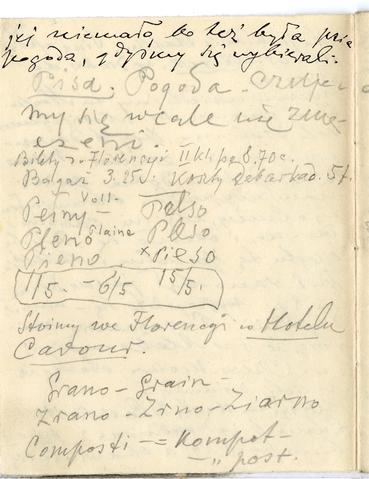 jej niemało, bo też była psia
pogoda, gdyśmy się wybierali.
Pisa. Pogoda – czuje
my się wcale nie zmę
czeni.
Bilety z Florencyi II kl. po 8.70 c.
Bagaż 3.25 c. Koszty 5 f.
Voll.
Pełny – Falso
Pleno Plaine Plso
Pieno × Pieso
1/5. – 6/5 15/5.
Stoimy we Florencyi w Hotelu
Cavour.
Grano – Grain –
Zrano – Zrno – Ziarno
Composti = Kompot –
– " post.